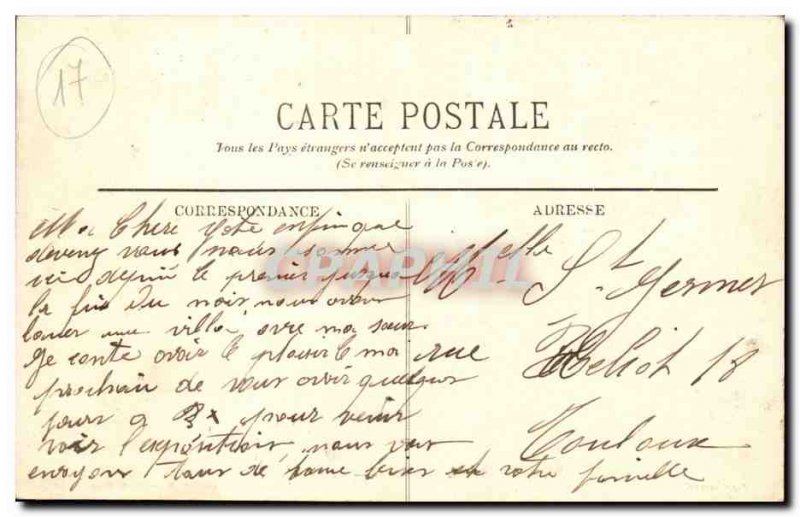 17
CARTE POSTALE
Tous les Pays étrangers n'acceptent pas la Correspondance au recto.
(Se renseigner à la Poste).
CORRESPONDANCE
ADRESSE
CPAPHIL
Ma Chere
devenez vous nous sommes
ici depuis le premier jusqua
la fin du mois, nous avons
louer une villa, avec ma sœur.
Je conte avoir le plaisir le mois
prochain de vous avoir quelques
jours a Bx pour venir
voir l'exposition, nous vous
envoyons tous de bons et votre famille
Melle St Germes
rue Heliot 18
Toulouse